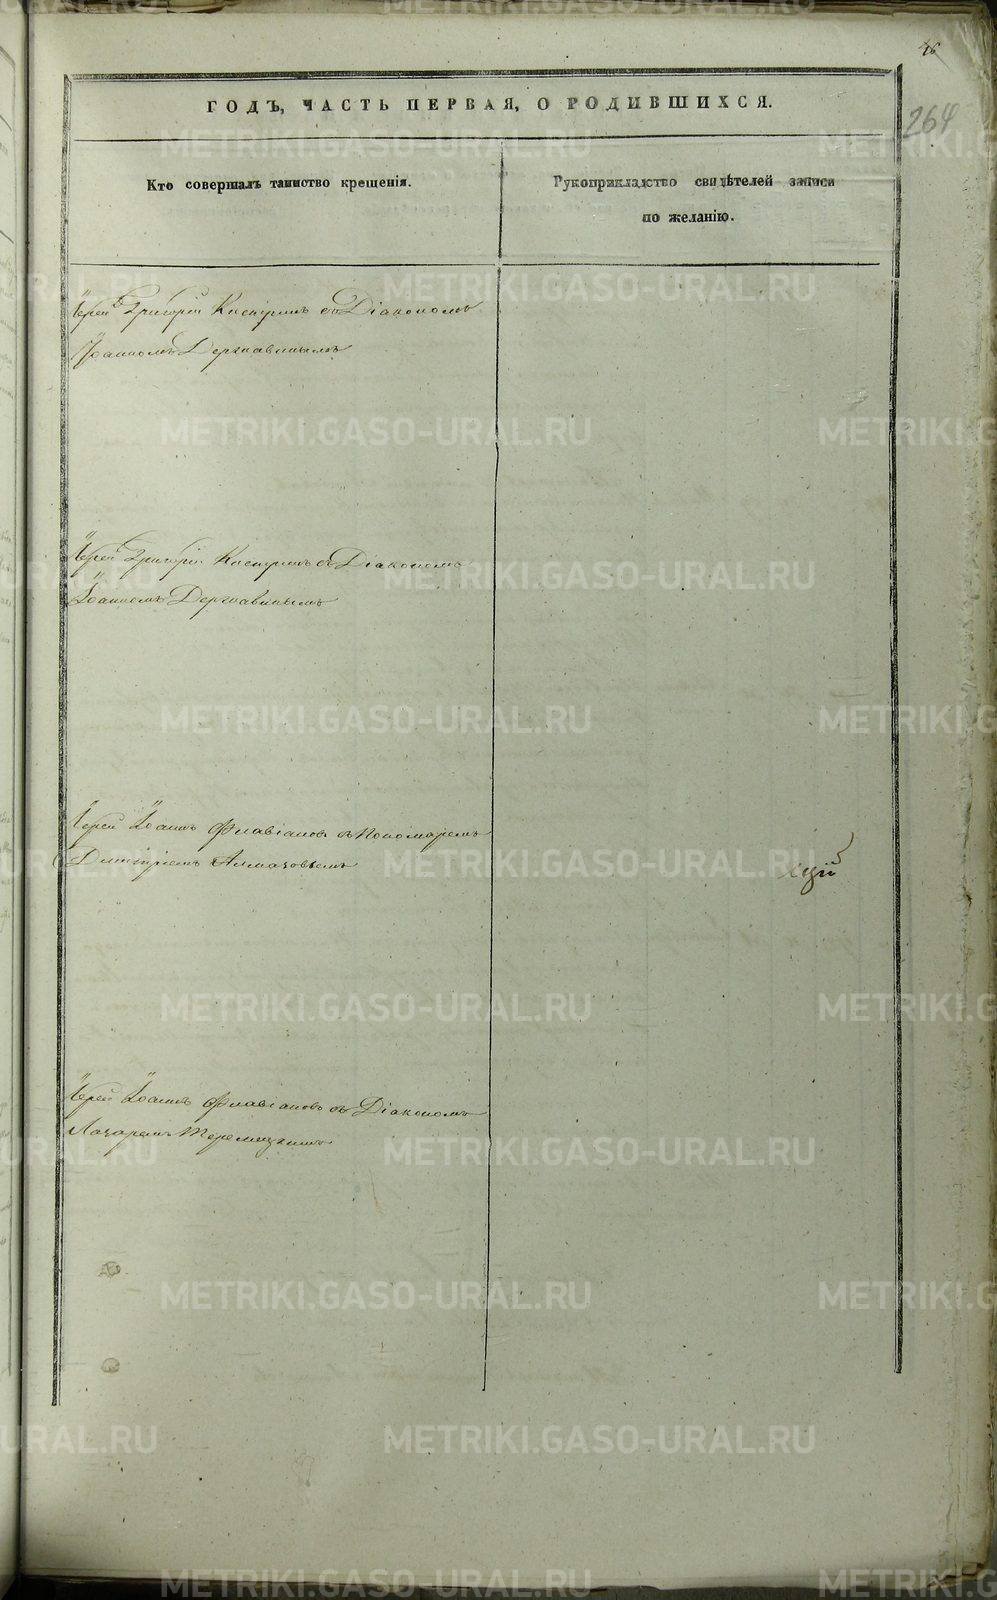 46
264
ГОДЪ, ЧАСТЬ ПЕРВАЯ, О РОДИВШИХСЯ.
Кто совершалъ таинство крещенія.
Рукоприкладство свидѣтелей записи
по желанію.
Іерей Григорій с Діакономъ
Іоанномъ Державинымъ
Іерей Григорій с Діакономъ
Іоанномъ Державинымъ
Іерей Іоаннъ Флавіановъ съ Пономаремъ
Димитріемъ Алмазовымъ
Іерей Іоаннъ Флавіановъ съ Діакономъ
Лазаремъ
METRIKI.GASO-URAL.RU